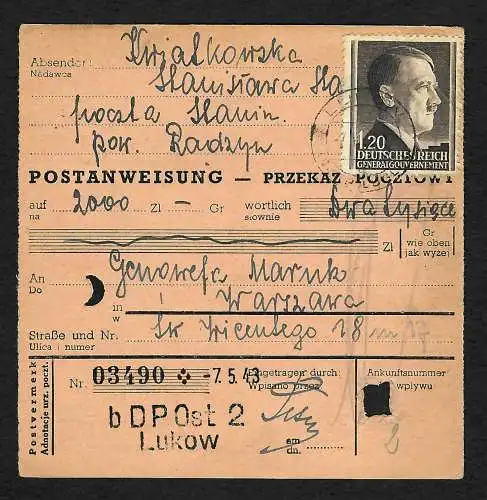 Absender: Kwiatkowska
Nadawca
Stanisława
poczta Stanin.
pow. Radzyn
1.20
DEUTSCHES REICH
GENERALGOUVERNEMENT
POSTANWEISUNG — PRZEKAZ POCZTOWY
auf 2000 Zl — Gr wörtlich Dwa tysiące
na słownie
Zl Gr
wie oben
jak wyżej
An Genowefa Maruk
Do
in Warszawa
w
Straße und Nr. Św Wicentego 18 m 17
Ulica i numer
Postvermerk
Adnotacje urz. poczt.
Nr. 03490 -7.5.43 Eingetragen durch:
Wpisano przez
Ankunftsnummer
wpływu
b DP Ost 2
Lukow
am
dn.
2